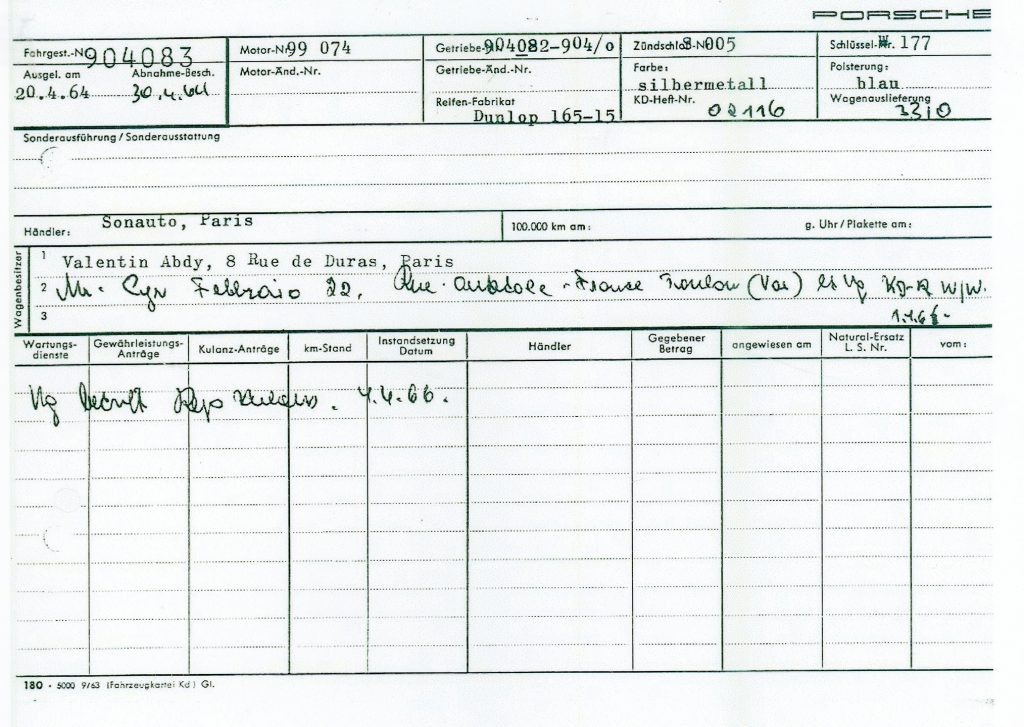 PORSCHE
Fahrgest.-Nr. 904083
Motor-Nr. 99 074
Getriebe-Nr. 904082-904/o
Zündschloß-Nr. 005
Schlüssel-Nr. 177
Ausgel. am
Abnahme-Besch.
Motor-Änd.-Nr.
Getriebe-Änd.-Nr.
Farbe:
Polsterung:
20.4.64
30.4.64
silbermetall
blau
Reifen-Fabrikat
KD-Heft-Nr. 02116
Wagenauslieferung
Dunlop 165-15
3310
Sonderausführung / Sonderausstattung
Händler: Sonauto, Paris
100.000 km am:
g. Uhr / Plakette am:
Wagenbesitzer
1 Valentin Abdy, 8 Rue de Duras, Paris
2 Mr. Febbraio 22, Rue France Toulon (Var) W/W.
3
Wartungs-dienste
Gewährleistungs-Anträge
Kulanz-Anträge
km-Stand
Instandsetzung Datum
Händler
Gegebener Betrag
angewiesen am
Natural-Ersatz L. S. Nr.
vom:
4.4.66.
180 • 5000 9/63 (Fahrzeugkartei Kd) Gl.